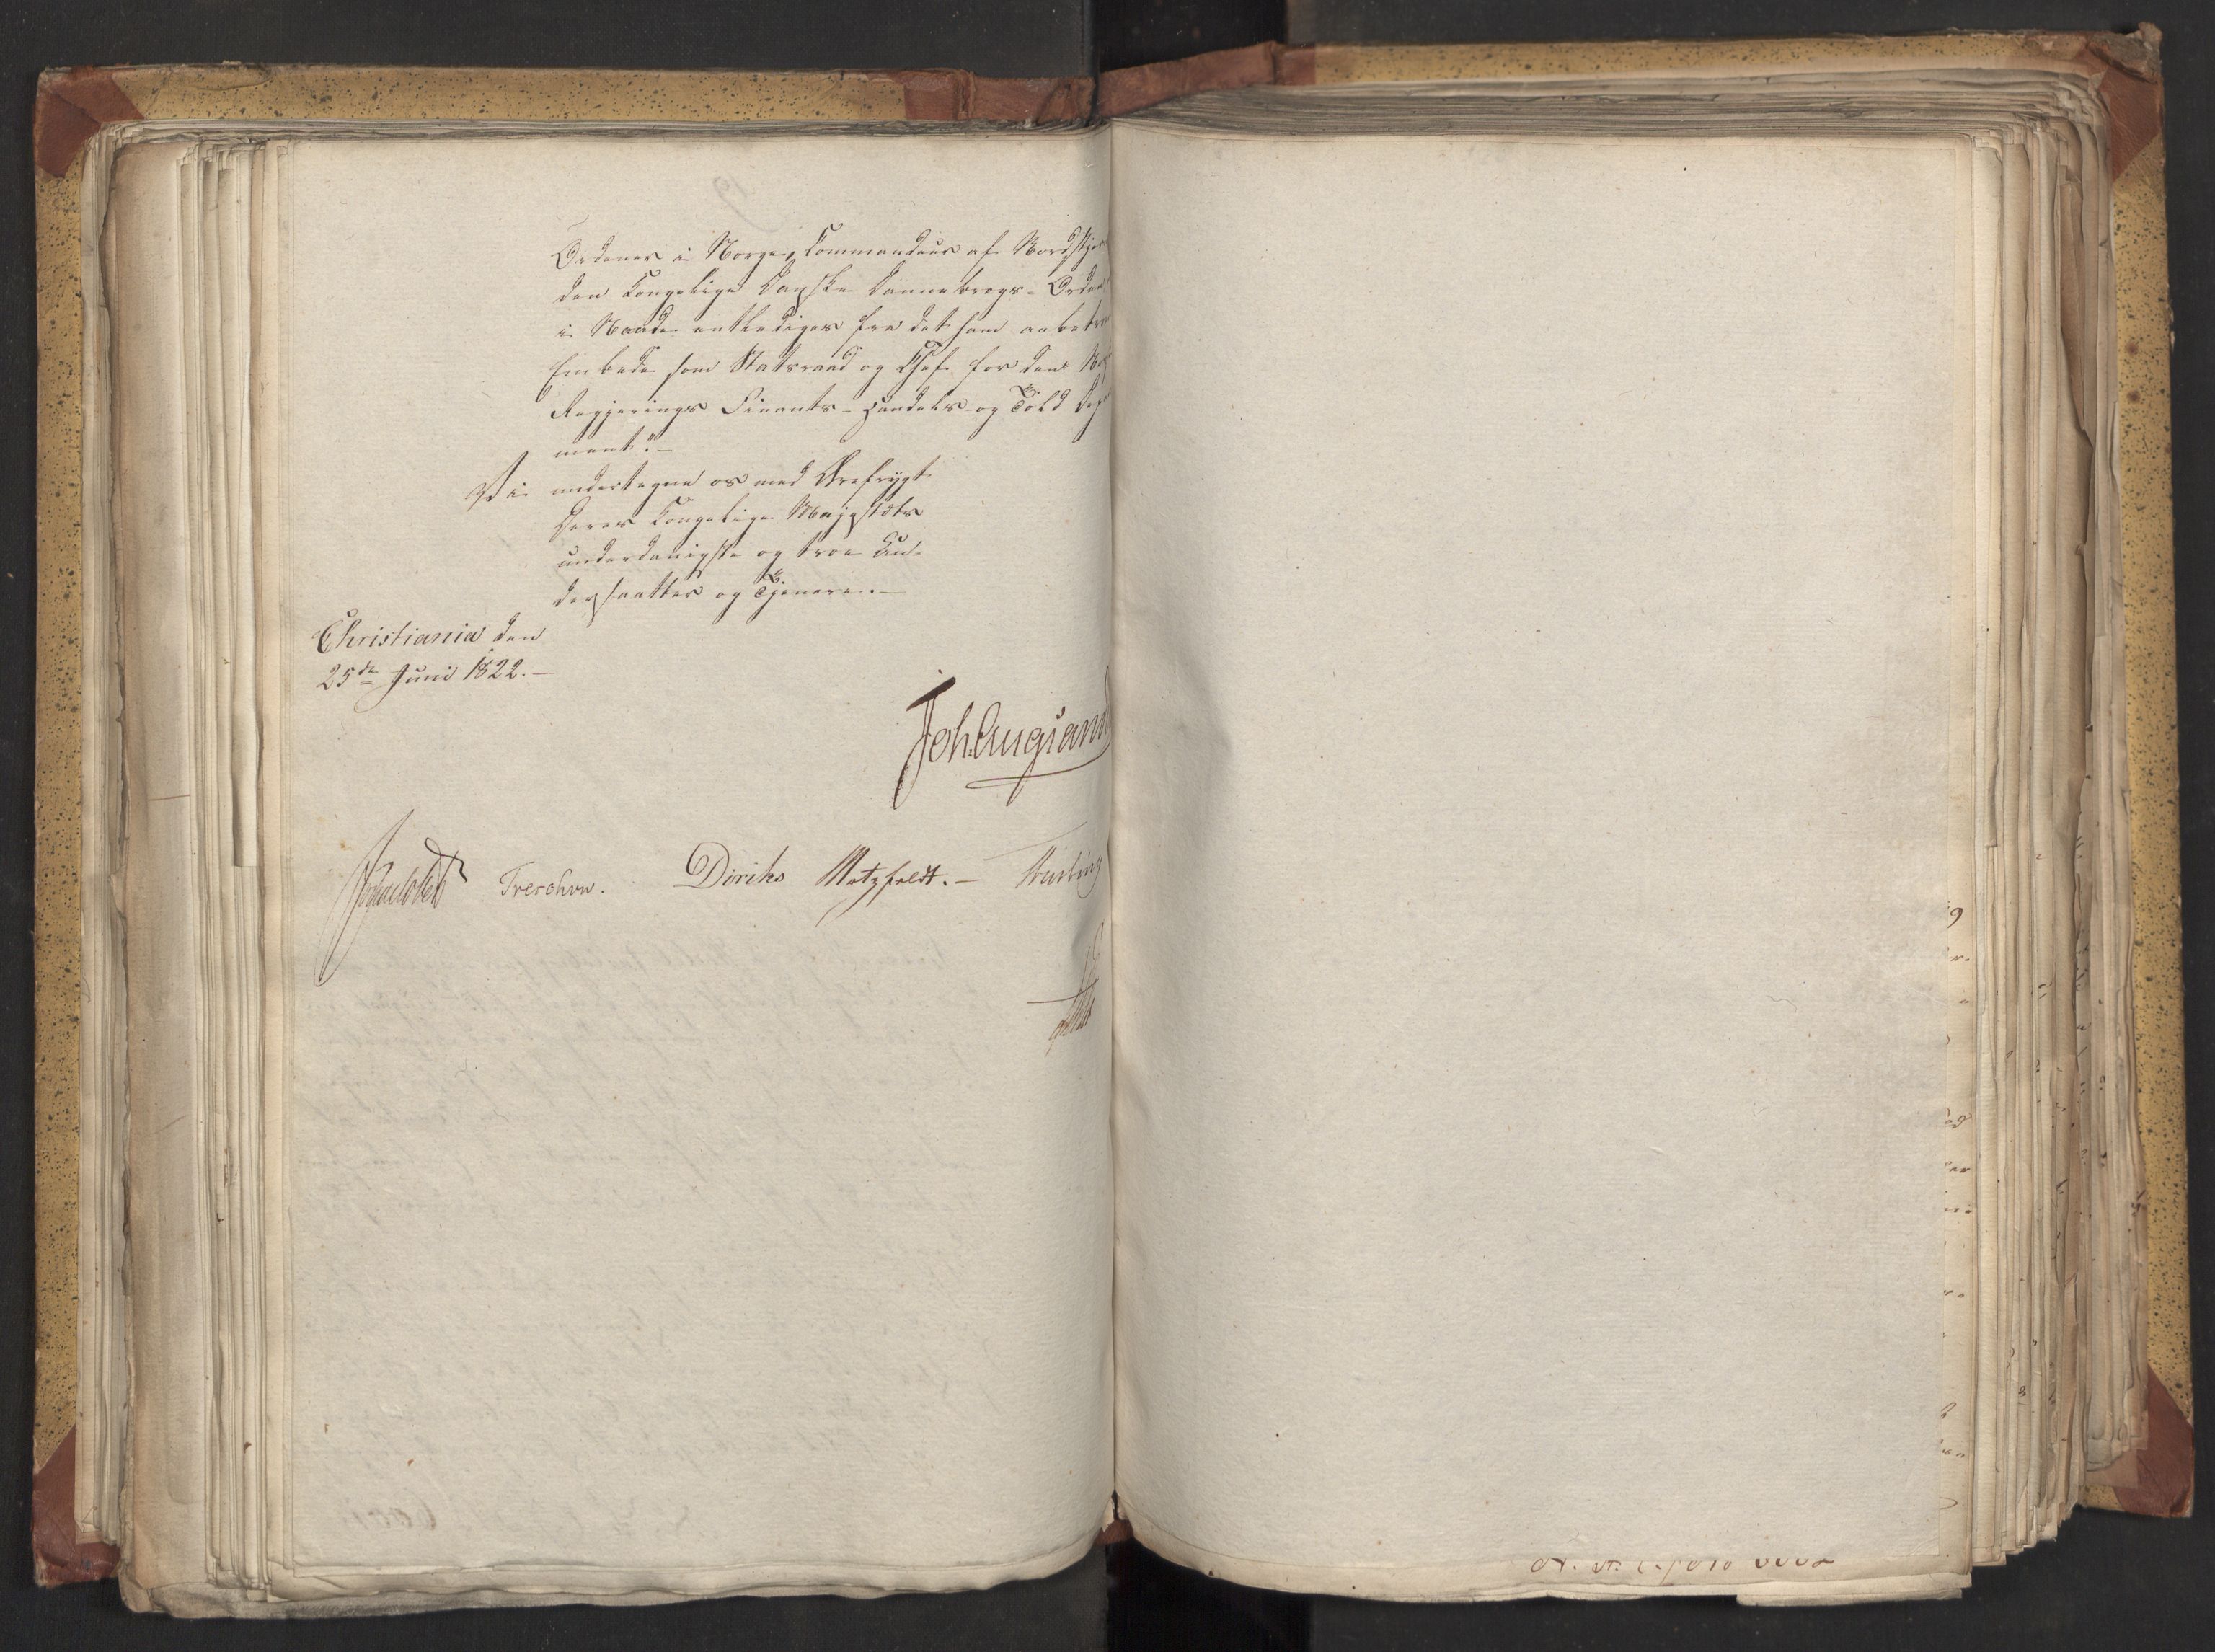 Ordener i Norge, Commandeur af Nordstjer
den Kongelige Danske Dannebrogs-Orden,
i Naade entlediges fra det ham anbetro
Embede som Statsraad og Chef for den
Regjerings Finants- Handels- og Told Depar
ment."—
Vi undertegne os med Ærefrygt
Deres Kongelige Majestæts
underdanigste og troe Un-
dersaatter og Tjenere.—
Christiania den
25de Juni 1822.—
Joh: Aug: Sand
Treschow. Diriks Motzfeldt.—